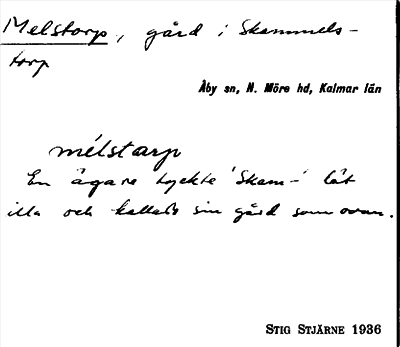 Melstorp, gård i Skammels-
torp
Åby sn, N. Möre hd, Kalmar län
mélstarp
En ägare tyckte 'Skam-' lät
illa och kallade sin gård som ovan.
STIG STJÄRNE 1936